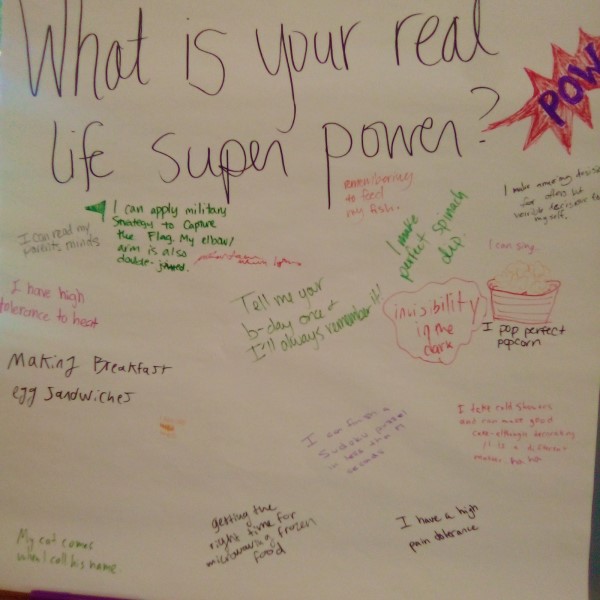 What is your real
life super power?
POW
remembering
to feed
my fish.
I make amazing
for others but
terrible decisions
myself.
I can apply military
strategy to Capture
the Flag. My elbow/
arm is also
double-jointed.
I can read my
parents minds
I make
perfect spinach
dip.
I can sing
I have high
tolerance to heat
Tell me your
b-day once &
I'll always remember it!
invisibility
in the
dark
I pop perfect
popcorn
Making Breakfast
egg Sandwiches
I can finish a
Sudoku puzzel
in less than
seconds
I take cold showers
and can make good
cake-although decorating
it is a different
matter. ha ha
getting the
right time for
microwaving frozen
food
I have a high
pain tolerance
My cat comes
when I call his name.